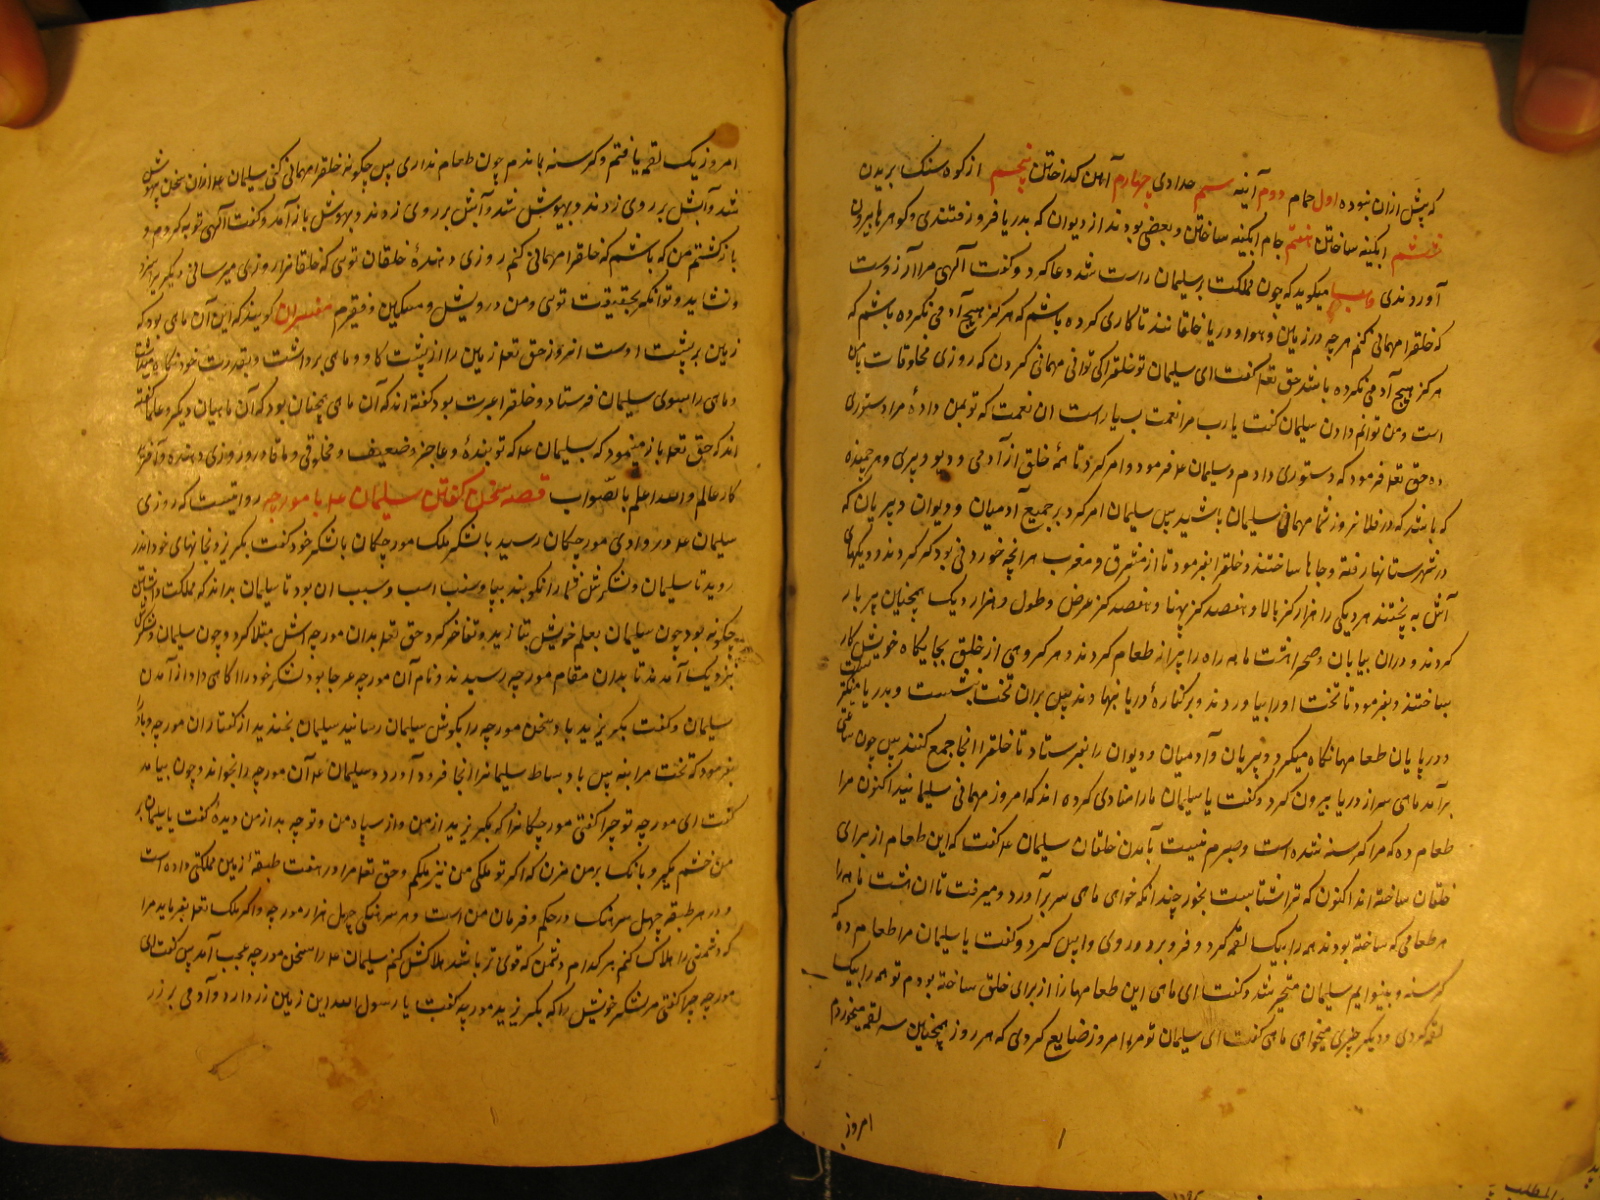 که پیش ازان نبوده اول حمام دوم آینه سیم حدادی چهارم آهن کداختن پنجم از کوه سنک بریدن
ششم ابکینه ساختن هفتم جام ابکینه ساختن و بعضی بودند از دیوان که بدریا فرو رفتندی و کوهرها بیرون
آوردندی میکوید که چون مملکت بر سلیمان راست شد دعا کرد و کفت آلهی مرا آرزوست
که خلقرا مهمانی کنم هرچه در زمین و هوا و دریا خلقانند تا کاری کرده باشم که هرکز هیچ آدمی نکرده باشم که
هرکز هیچ آدمی نکرده باشد حق تعا کفت ای سلیمان تو خلقرا کی توانی مهمانی کردن که روزی مخلوقات بامن
است و من توانم دادن سلیمان کفت یا رب مرا نعمت بسیار است ان نعمت که تو بمن دادهٔ مرا دستوری
ده حق تعا فرمود که دستوری دادم و سلیمان عه فرمود و امر کرد تا همهٔ خلق از آدمی و دیو و پری و هر جنبنده
که باشد که در فلان روز شما مهمان سلیمان باشید پس سلیمان امر کرد بر جمیع آدمیان و دیوان و پریان که
در شهرستانها رفتند و جاها ساختند و خلقرا بفرمود تا از مشرق و مغرب هرانچه خوردنی بود کرد کردند و دیکهای
آش به پختند هر دیکی را هزار کز بالا و هفصد کز پهنا و هفصد کز عرض و طول و هزار دیک همچنین پر بار
کردند و دران بیابان و صحرا هشت ماهه راه را پر از طعام کردند و هر کروهی از خلق بجایکاه خویش کار
ساختند و بفرمود تا تخت او را بیاوردند و بر کنارهٔ دریا نهادند پس بران تخت بنشست و بدریا مینکریست
و در پایان طعامها نکاه میکرد و پریان و آدمیان و دیوان را بفرستاد تا خلقرا انجا جمع کنند پس چون ساعتی
برآمد ماهی سر از دریا بیرون کرد و کفت یا سلیمان ما را منادی کرده اند که امروز مهمانی سلیمانید اکنون مرا
طعام ده که مرا کرسنه شده است و صبرم نیست تا آمدن خلقان سلیمان عه کفت که این طعام از برای
خلقان ساخته اند اکنون که ترا شتابست بخور چندانکه خواهی ماهی سر برآورد و میرفت تا ان هشت ماهه را
هر طعامی که ساخته بودند همه را بیک لقمه کرد و فرو برد و روی واپس کرد و کفت یا سلیمان مرا طعام ده که
کرسنه و بینوایم سلیمان متحیر شد و کفت ای ماهی این طعامها را از برای خلق ساخته بودم تو همه را بیک
لقمه کردی و دیکر چیزی میخواهی ماهی کفت ای سلیمان تو مرا امروز ضایع کردی که هر روز همچنین سه لقمه میخوردم
امروز
امروز یک لقمه یافتم و کرسنه بماندم چون طعام نداری پس چکونه خلقرا مهمانی کنی سلیمان عه ازان سخن بیهوش
شد و آبش بر روی زدند و بیهوش شد و آبش بر روی زدند و بهوش باز آمد و کفت آلهی توبه کردم و
بازکشتم من که باشم که خلقرا مهمانی کنم روزی دهندهٔ خلقان توی که خلقانرا روزی میرسانی دیکریرا نسزد
و نشاید و توانکر بحقیقت توی و من درویش و مسکین و فقیرم مفسران کویند که این آن ماهی بود که
زمین بر پشت اوست انروز حق تعا زمین را از پشت کاو و ماهی برداشت و بقدرت خود نکاه میداشت
و ماهی را بسوی سلیمان فرستاد و خلقرا عبرت بود کفته اند که آن ماهی همچنان بود که آن ماهیان دیکر و علما کفته
اند که حق تعا باز مینمود که سلیمان عه که تو بندهٔ و عاجز و ضعیف و مخلوقی و ما قادر و روزی دهنده و آفریننده
کار عالم والله اعلم بالصواب قصه سخن کفتن سلیمان عه با مورچه روایتست که روزی
سلیمان عه در وادی مورچکان رسید با لشکر ملک مورچکان با لشکر خود کفت بکریزد بخانهای خود اندر
روید تا سلیمان و لشکرش شما را نکوبند بپا و سنب اسب و سبب ان بود تا سلیمان بداند که مملکت داشتن
چکونه بود چون سلیمان بعلم خویش بنازید و تفاخر کرد حق تعا بدان مورچه اش مبتلا کرد و چون سلیمان و لشکرش
نزدیک آمدند تا بدان مقام مورچه رسیدند و نام آن مورچه عرجا بود لشکر خود را اکاهی داد از آمدن
سلیمان و کفت بکریزید باد سخن مورچه را بکوش سلیمان رسانید سلیمان بخندید از کفتار ان مورچه و باد را
بفرمود که تخت مرا بنه پس باد بساط سلیمانرا انجا فرود آورد و سلیمان عه آن مورچه را بخواند و چون بیامد
کفت ای مورچه تو چرا کفتی مورچکانرا که بکریزید از من و از سپاه من و تو چه بد از من دیدهٔ کفت یا سلیمان بر
من خشم مکیر و بانک بر من مزن که اکر تو ملکی من نیز ملکم و حق تعا مرا در هفت طبقهٔ زمین مملکتی داده است
و در هر طبقه چهل سرهنک در حکم و فرمان من است و هر سرهنکی چهل هزار مورچه و اکر ملک تعا بفرماید مرا
که دشمنی را هلاک کنم هر کدام دشمن که قوی تر باشد هلاکش کنم سلیمان عه را سخن مورچه عجب آمد پس کفت ای
مورچه چرا کفتی مر لشکر خویش را که بکریزید مورچه کفت یا رسول الله این زمین زر دارد و آدمی بر زر